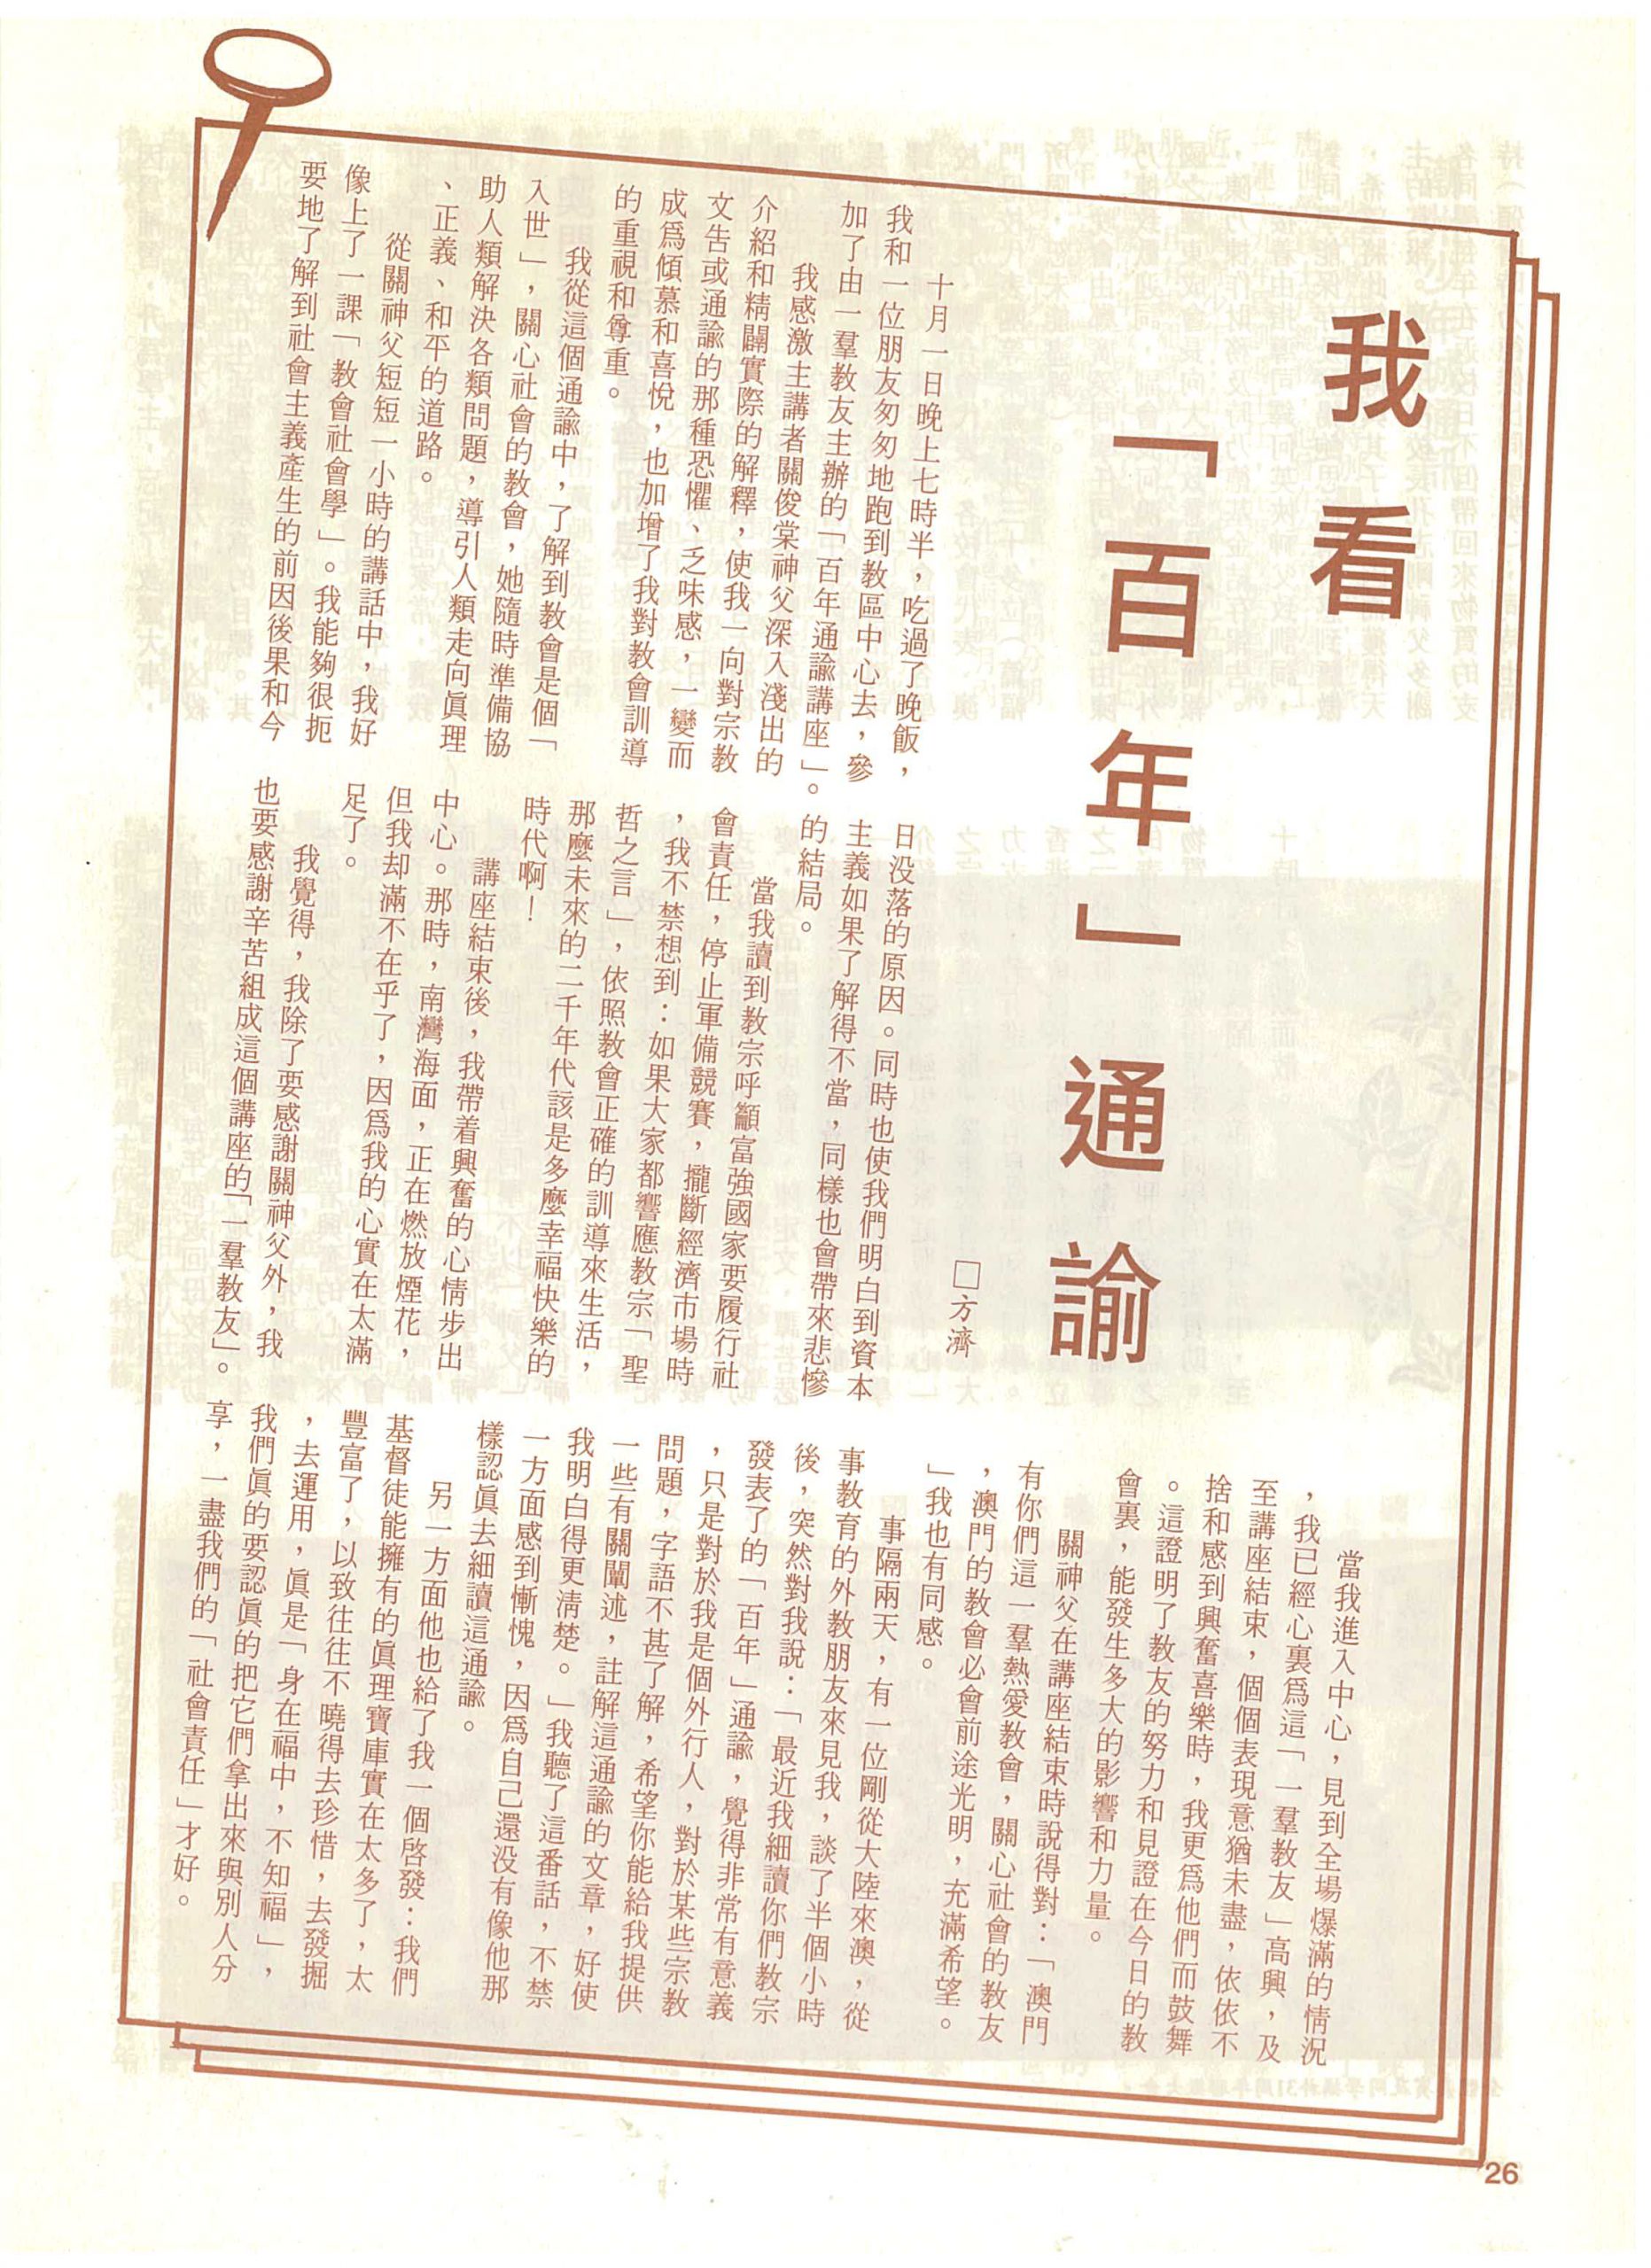 我看
「百年」通諭
□方濟
十月一日晚上七時半，吃過了晚飯，
我和一位朋友匆匆地跑到教區中心去，參
加了由一羣教友主辦的「百年通諭講座」。
我感激主講者關俊棠神父深入淺出的
介紹和精闢實際的解釋，使我一向對宗教
文告或通諭的那種恐懼、乏味感，一變而
成爲傾慕和喜悅，也加增了我對教會訓導
的重視和尊重。
我從這個通諭中，了解到教會是個「
入世」，關心社會的教會，她隨時準備協
助人類解決各類問題，導引人類走向眞理
、正義、和平的道路。
從關神父短短一小時的講話中，我好
像上了一課「教會社會學」。我能夠很扼
要地了解到社會主義產生的前因後果和今
日没落的原因。同時也使我們明白到資本
主義如果了解得不當，同樣也會帶來悲慘
的結局。
當我讀到教宗呼籲富強國家要履行社
會責任，停止軍備競賽，攏斷經濟市場時
，我不禁想到：如果大家都響應教宗「聖
哲之言」，依照教會正確的訓導來生活，
那麼未來的二千年代該是多麼幸福快樂的
時代啊！
講座結束後，我帶着興奮的心情步出
中心。那時，南灣海面，正在燃放煙花，
但我却滿不在乎了，因爲我的心實在太滿
足了。
我覺得，我除了要感謝關神父外，我
也要感謝辛苦組成這個講座的「一羣教友」。
當我進入中心，見到全場爆滿的情況
，我已經心裏爲這「一羣教友」高興，及
至講座結束，個個表現意猶未盡，依依不
捨和感到興奮喜樂時，我更爲他們而鼓舞
。這證明了教友的努力和見證在今日的教
會裏，能發生多大的影響和力量。
關神父在講座結束時說得對：「澳門
有你們這一羣熱愛教會，關心社會的教友
，澳門的教會必會前途光明，充滿希望。
」我也有同感。
事隔兩天，有一位剛從大陸來澳，從
事教育的外教朋友來見我，談了半個小時
後，突然對我說：「最近我細讀你們教宗
發表了的「百年」通諭，覺得非常有意義
，只是對於我是個外行人，對於某些宗教
問題，字語不甚了解，希望你能給我提供
一些有關闡述，註解這通諭的文章，好使
我明白得更淸楚。」我聽了這番話，不禁
一方面感到慚愧，因爲自己還没有像他那
樣認眞去細讀這通諭。
另一方面他也給了我一個啓發：我們
基督徒能擁有的眞理寶庫實在太多了，太
豐富了，以致往往不曉得去珍惜，去發掘
，去運用，眞是「身在福中，不知福」，
我們眞的要認眞的把它們拿出來與別人分
享，一盡我們的「社會責任」才好。
26